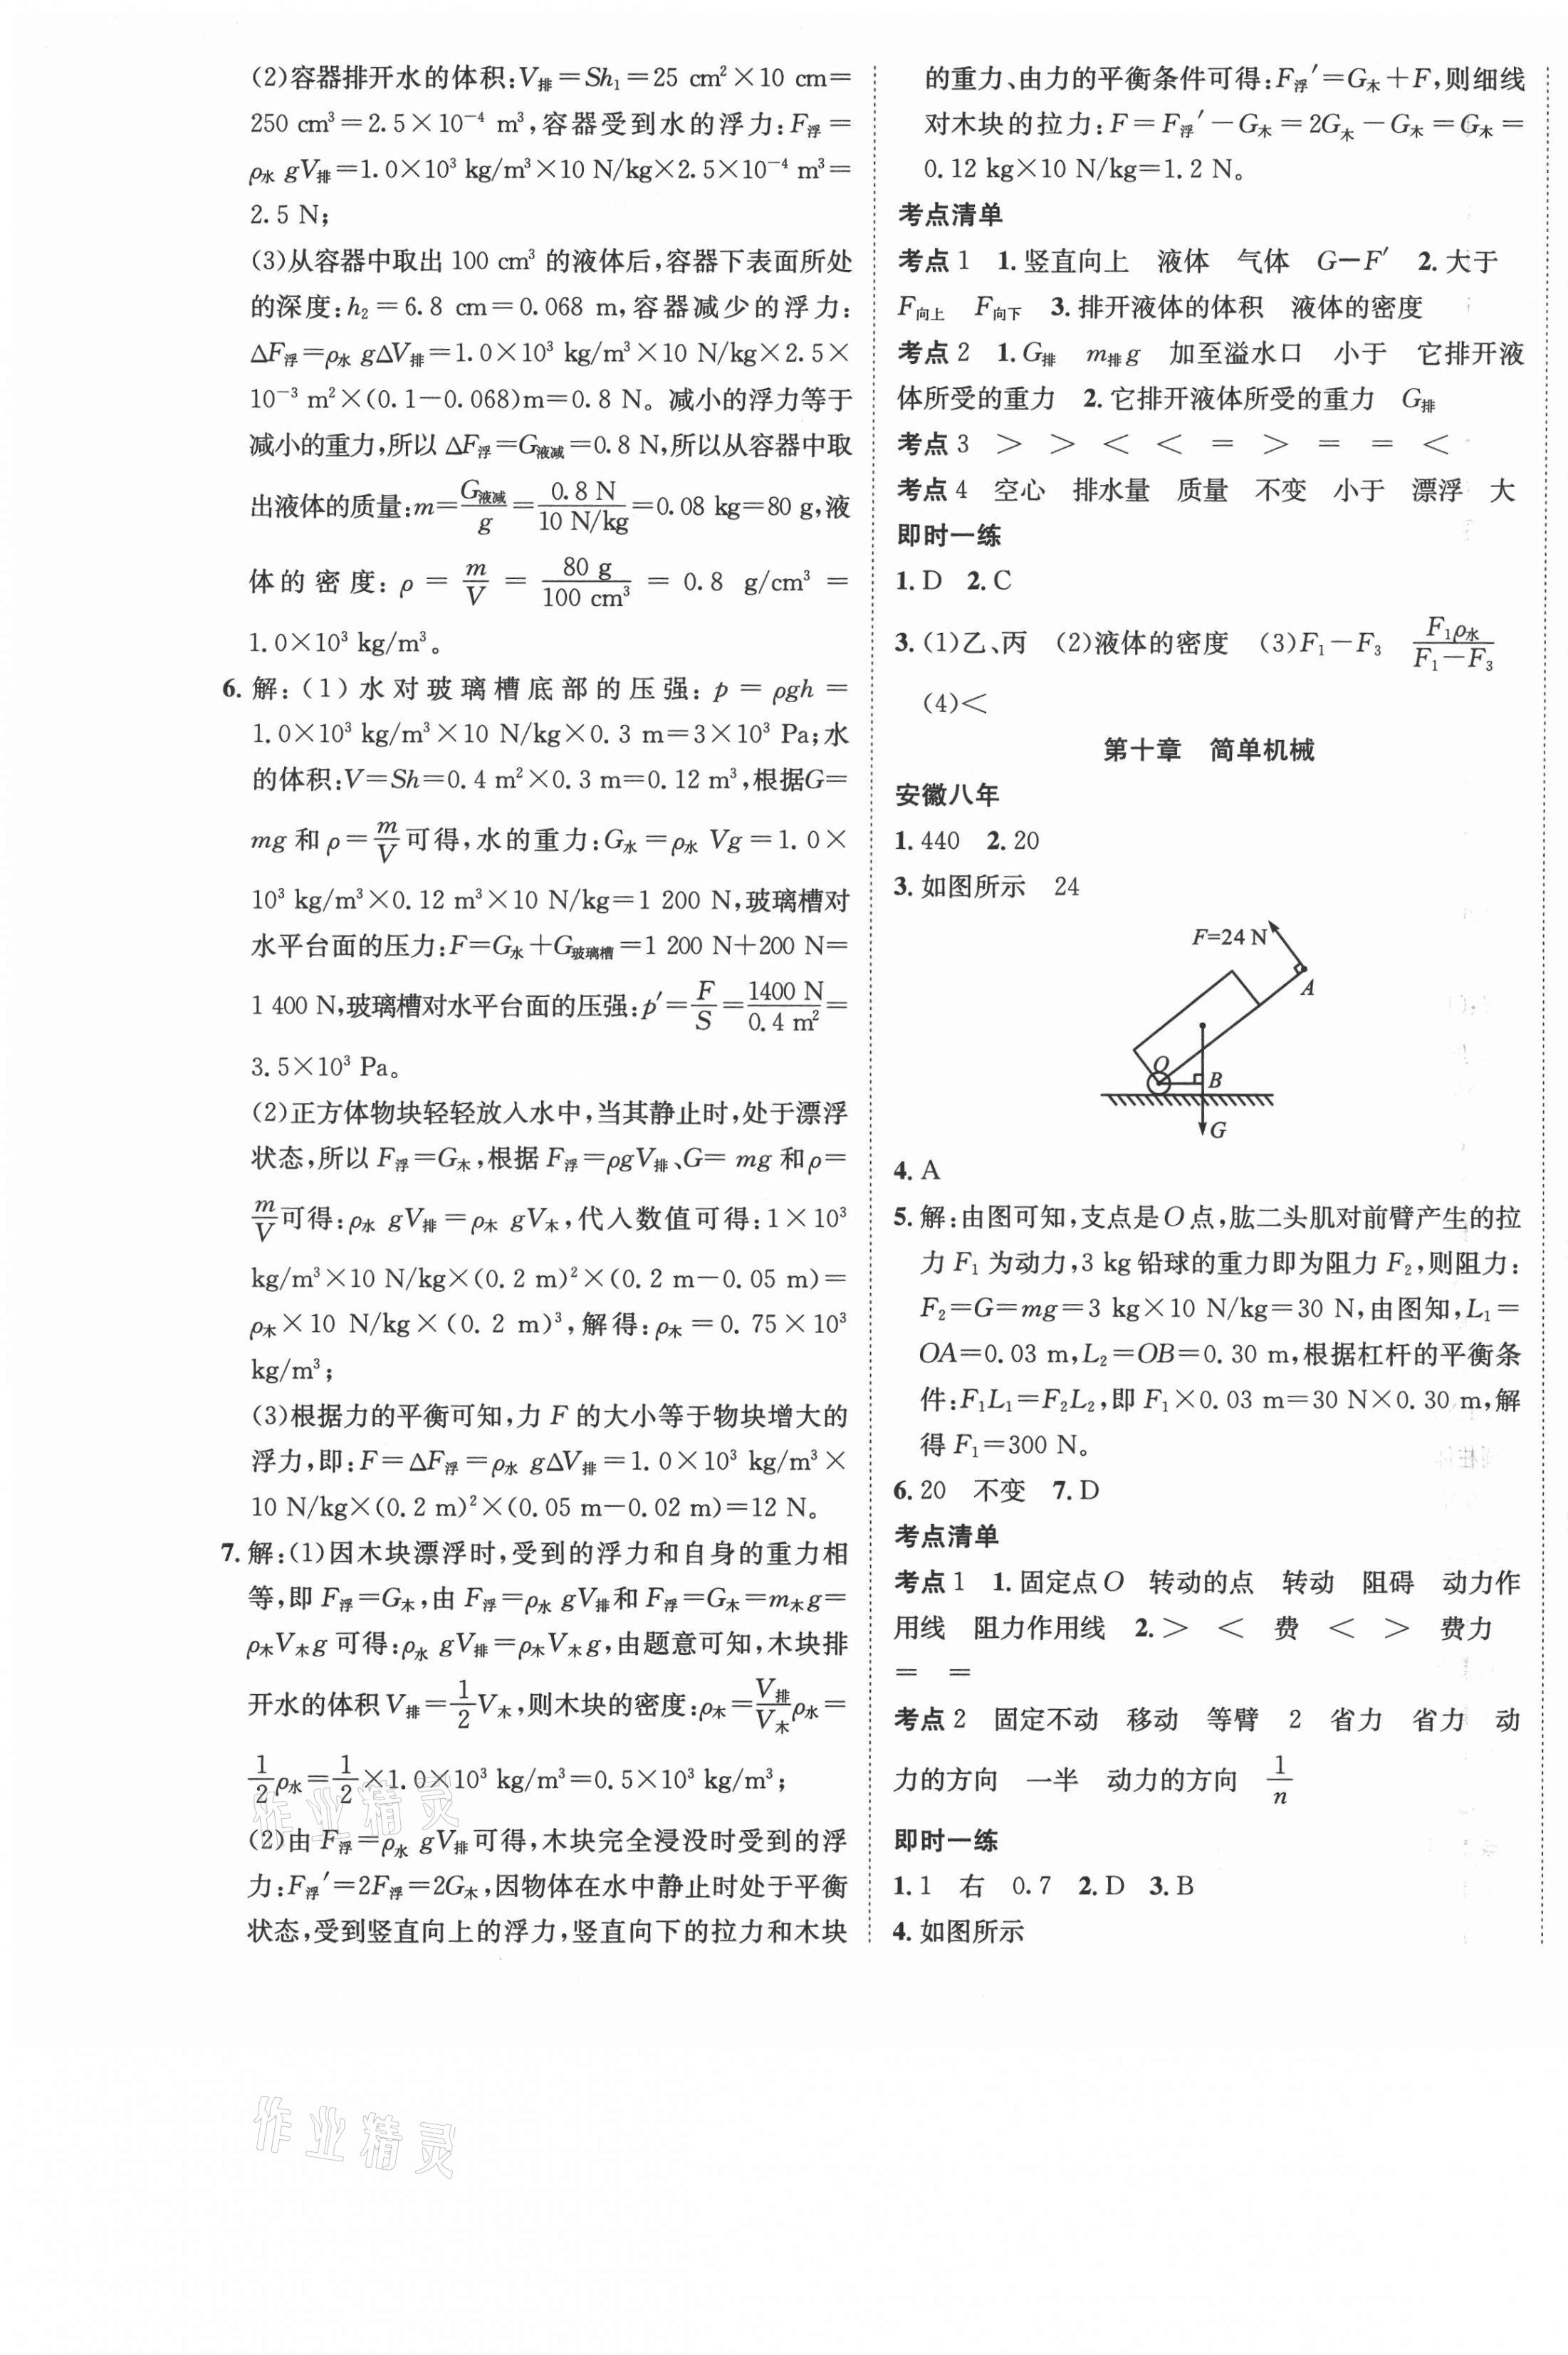 (2)容器排开水的体积:V排=Sh₁=25 cm²×10 cm=
250 cm³=2.5×10⁻⁴ m³,容器受到水的浮力:F浮=
ρ水 gV排=1.0×10³ kg/m³×10 N/kg×2.5×10⁻⁴ m³=
2.5 N;
(3)从容器中取出 100 cm³ 的液体后,容器下表面所处
的深度:h₂=6.8 cm=0.068 m,容器减少的浮力:
ΔF浮=ρ水 gΔV排=1.0×10³ kg/m³×10 N/kg×2.5×
10⁻³ m²×(0.1-0.068)m=0.8 N。减小的浮力等于
减小的重力,所以 ΔF浮=G液减=0.8 N,所以从容器中取
出液体的质量:m=G液减/g=0.8 N/10 N/kg=0.08 kg=80 g,液
体的密度:ρ=m/V=80 g/100 cm³=0.8 g/cm³=
1.0×10³ kg/m³。
6. 解:(1)水对玻璃槽底部的压强:p=ρgh=
1.0×10³ kg/m³×10 N/kg×0.3 m=3×10³ Pa;水
的体积:V=Sh=0.4 m²×0.3 m=0.12 m³,根据G=
mg 和 ρ=m/V可得,水的重力:G水=ρ水 Vg=1.0×
10³ kg/m³×0.12 m³×10 N/kg=1 200 N,玻璃槽对
水平台面的压力:F=G水+G玻璃槽=1 200 N+200 N=
1 400 N,玻璃槽对水平台面的压强:p′=F/S=1400 N/0.4 m²=
3.5×10³ Pa。
(2)正方体物块轻轻放入水中,当其静止时,处于漂浮
状态,所以 F浮=G木,根据 F浮=ρgV排、G=mg 和ρ=
m/V可得:ρ水 gV排=ρ木 gV木,代入数值可得:1×10³
kg/m³×10 N/kg×(0.2 m)²×(0.2 m-0.05 m)=
ρ木×10 N/kg×(0.2 m)³,解得:ρ木=0.75×10³
kg/m³;
(3)根据力的平衡可知,力 F 的大小等于物块增大的
浮力,即:F=ΔF浮=ρ水 gΔV排=1.0×10³ kg/m³×
10 N/kg×(0.2 m)²×(0.05 m-0.02 m)=12 N。
7. 解:(1)因木块漂浮时,受到的浮力和自身的重力相
等,即 F浮=G木,由 F浮=ρ水 gV排和 F浮=G木=m木g=
ρ木V木g 可得:ρ水 gV排=ρ木V木g,由题意可知,木块排
开水的体积 V排=1/2V木,则木块的密度:ρ木=V排/V木ρ水=
1/2ρ水=1/2×1.0×10³ kg/m³=0.5×10³ kg/m³;
(2)由 F浮=ρ水 gV排可得,木块完全浸没时受到的浮
力:F浮′=2F浮=2G木,因物体在水中静止时处于平衡
状态,受到竖直向上的浮力,竖直向下的拉力和木块
的重力、由力的平衡条件可得:F浮′=G木+F,则细线
对木块的拉力:F=F浮′-G木=2G木-G木=G木=
0.12 kg×10 N/kg=1.2 N。
考点清单
考点1 1.竖直向上 液体 气体 G-F′ 2.大于
F向上 F向下 3.排开液体的体积 液体的密度
考点2 1.G排 m排g 加至溢水口 小于 它排开液
体所受的重力 2.它排开液体所受的重力 G排
考点3 > > < < = > = = <
考点4 空心 排水量 质量 不变 小于 漂浮 大
即时一练
1. D 2. C
3. (1)乙、丙 (2)液体的密度 (3)F₁-F₃ F₁ρ水/F₁-F₃
(4)<
第十章 简单机械
安徽八年
1. 440 2. 20
3. 如图所示 24
F=24 N
A
O
B
G
4. A
5. 解:由图可知,支点是O点,肱二头肌对前臂产生的拉
力 F₁ 为动力,3 kg 铅球的重力即为阻力 F₂,则阻力:
F₂=G=mg=3 kg×10 N/kg=30 N,由图知,L₁=
OA=0.03 m,L₂=OB=0.30 m,根据杠杆的平衡条
件:F₁L₁=F₂L₂,即 F₁×0.03 m=30 N×0.30 m,解
得 F₁=300 N。
6. 20 不变 7. D
考点清单
考点1 1.固定点O 转动的点 转动 阻碍 动力作
用线 阻力作用线 2.> < 费 < > 费力
= =
考点2 固定不动 移动 等臂 2 省力 省力 动
力的方向 一半 动力的方向 1/n
即时一练
1. 1 右 0.7 2. D 3. B
4. 如图所示
作业精灵
作业精灵